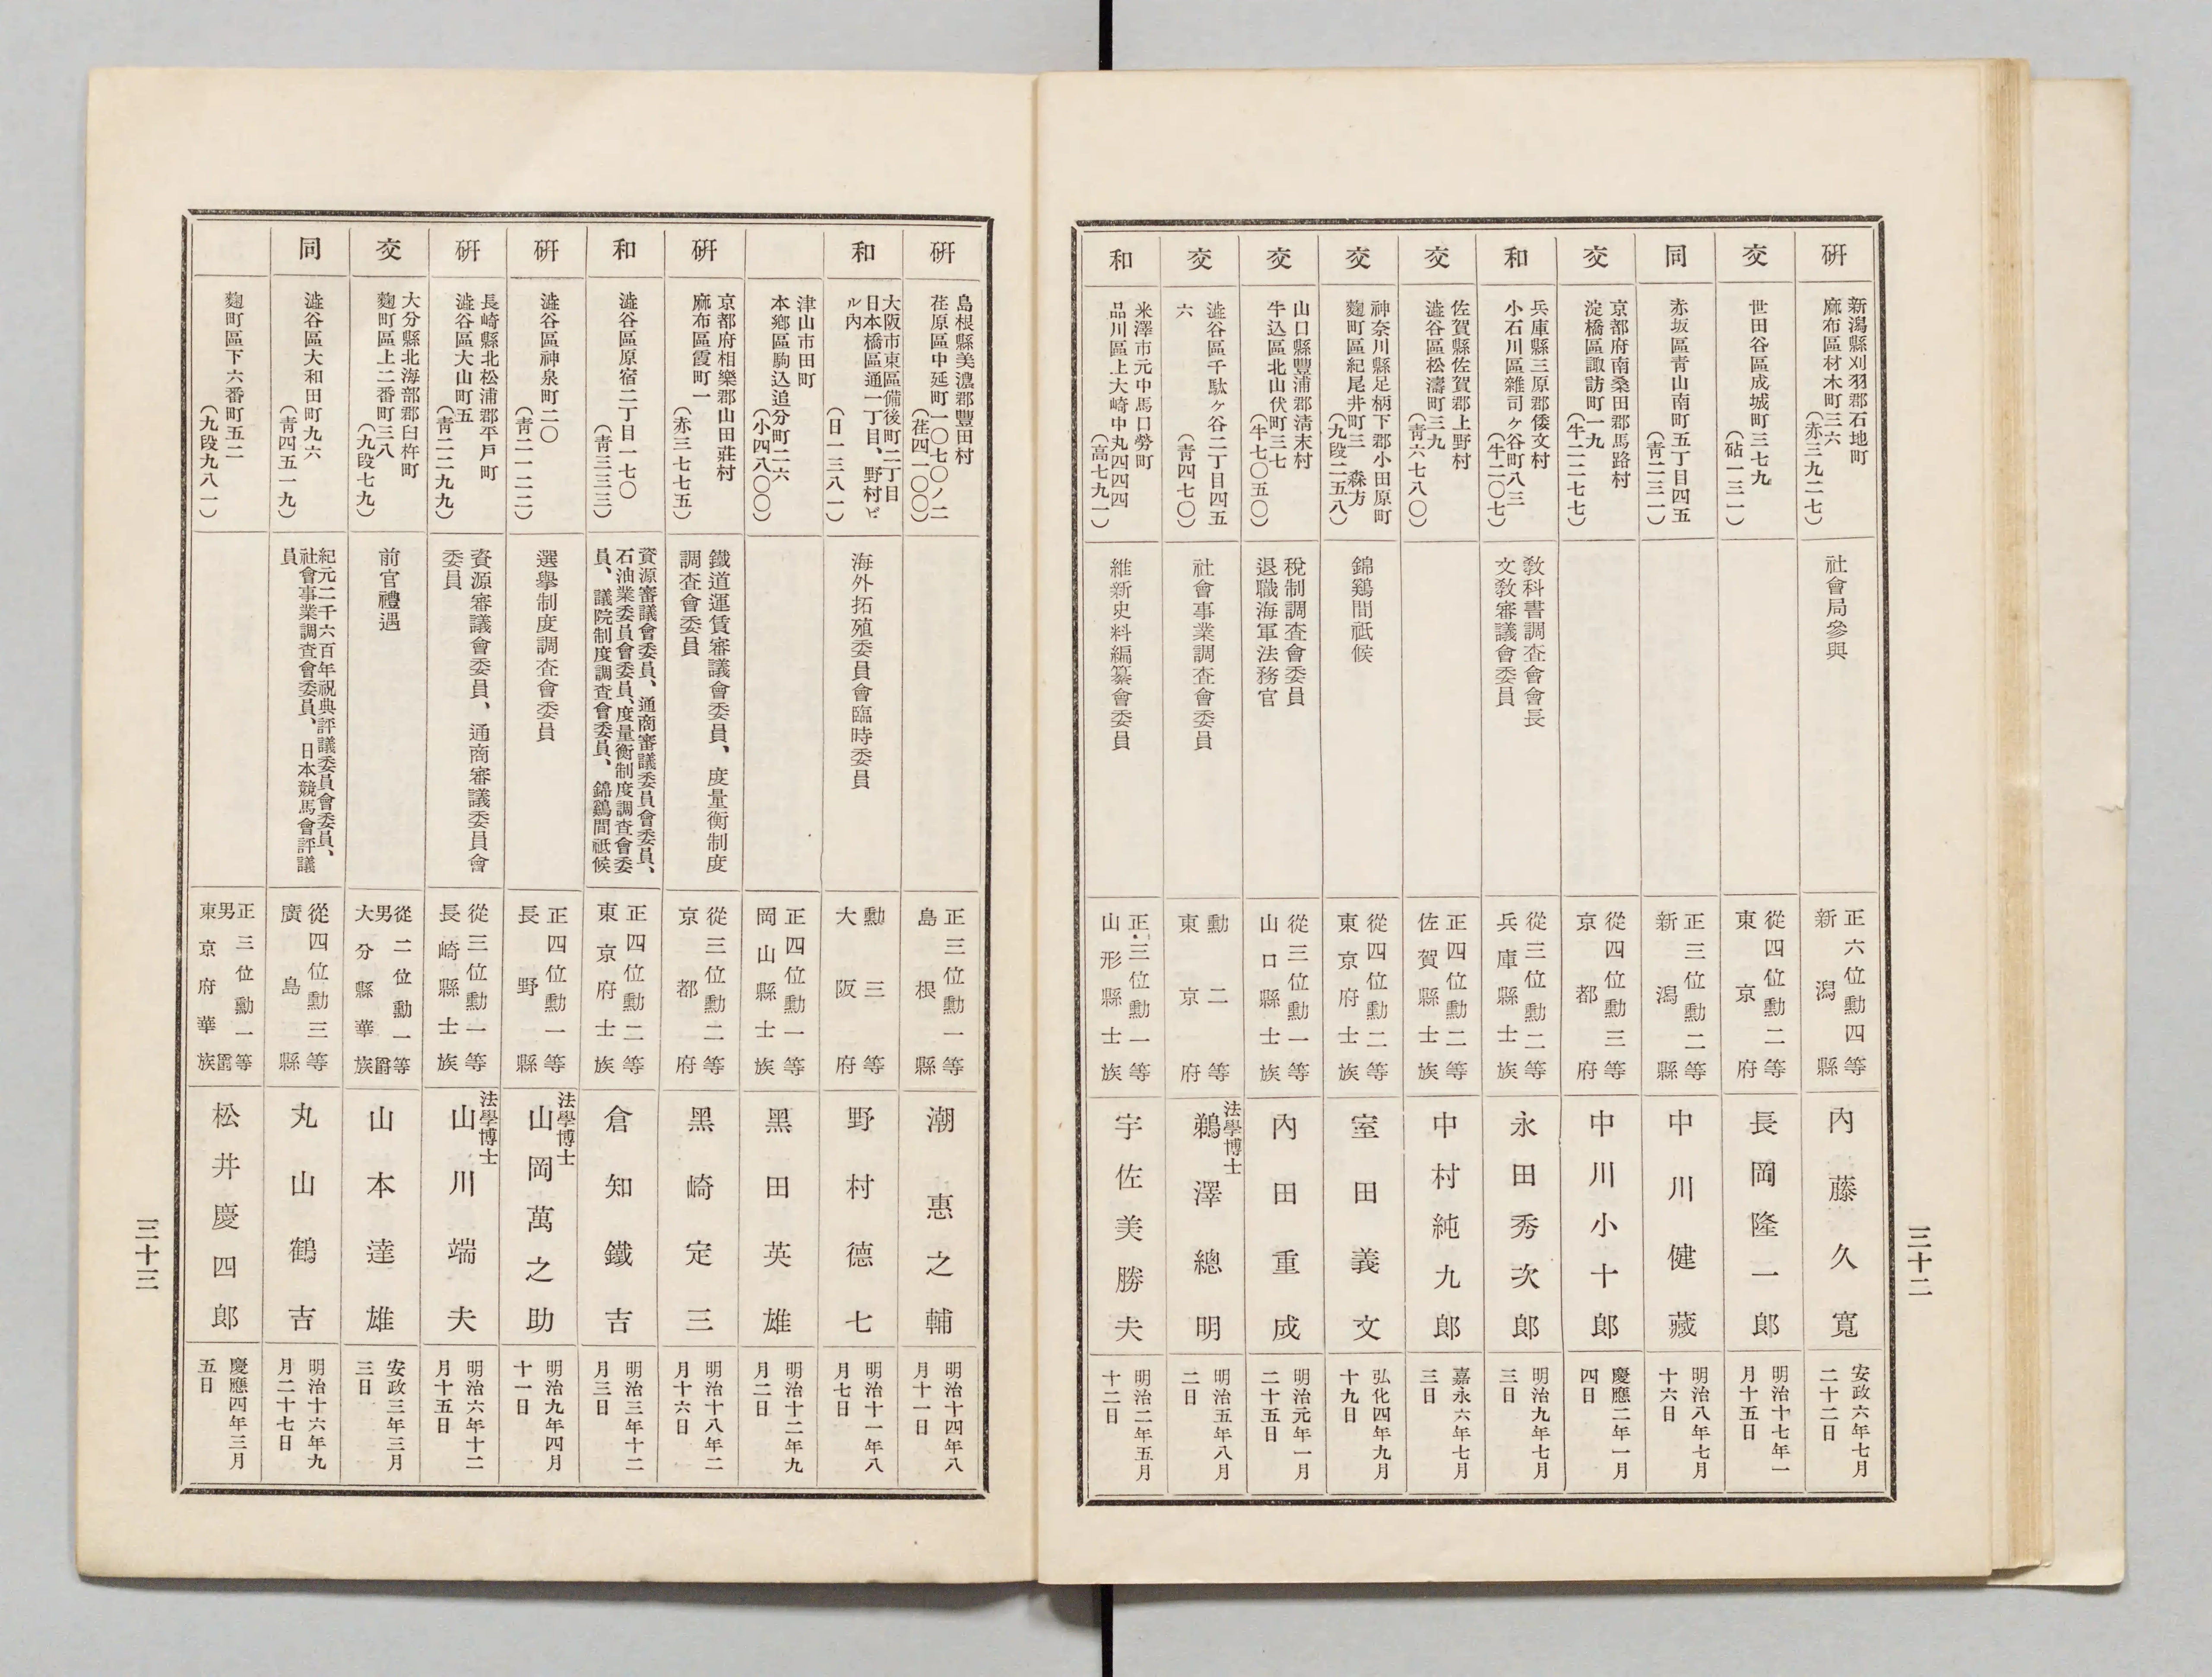 三十二
研
新潟縣刈羽郡石地町
麻布區材木町三六
（赤三九二七）
社會局參與
正六位勳四等
新潟縣
內藤久寬
安政六年七月
二十二日
交
世田谷區成城町三七九
（砧一三一）
從四位勳二等
東京府
長岡隆一郎
明治十七年一
月十五日
同
赤坂區靑山南町五丁目四五
（靑二三一）
正三位勳二等
新潟縣
中川健藏
明治八年七月
十六日
交
京都府南桑田郡馬路村
淀橋區諏訪町一九
（牛二二七七）
從四位勳三等
京都府
中川小十郎
慶應二年一月
四日
和
兵庫縣三原郡倭文村
小石川區雜司ヶ谷町八三
（牛二〇七）
敎科書調査會會長
文敎審議會委員
從三位勳二等
兵庫縣士族
永田秀次郎
明治九年七月
三日
交
佐賀縣佐賀郡上野村
澁谷區松濤町三九
（靑六七八〇）
正四位勳二等
佐賀縣士族
中村純九郎
嘉永六年七月
三日
交
神奈川縣足柄下郡小田原町
麴町區紀尾井町三　森方
（九段二五八）
錦鷄間祗候
從四位勳二等
東京府士族
室田義文
弘化四年九月
十九日
交
山口縣豐浦郡淸末村
牛込區北山伏町三七
（牛七〇五〇）
稅制調査會委員
退職海軍法務官
從三位勳一等
山口縣士族
內田重成
明治元年一月
二十五日
交
澁谷區千駄ヶ谷二丁目四五
六
（靑四七〇）
社會事業調査會委員
勳二等
東京府
法學博士
鵜澤總明
明治五年八月
二日
和
米澤市元中馬口勞町
品川區上大崎中丸四四四
（高七九一）
維新史料編纂會委員
正三位勳一等
山形縣士族
宇佐美勝夫
明治二年五月
十二日
研
島根縣美濃郡豐田村
荏原區中延町一〇七〇ノ二
（荏四一〇〇）
正三位勳一等
島根縣
潮惠之輔
明治十四年八
月十一日
和
大阪市東區備後町二丁目
日本橋區通一丁目、野村ビ
ル內
（日一三八一）
海外拓殖委員會臨時委員
勳三等
大阪府
野村德七
明治十一年八
月七日
津山市田町
本鄕區駒込追分町二六
（小四八〇〇）
正四位勳一等
岡山縣士族
黑田英雄
明治十二年九
月二日
研
京都府相樂郡山田莊村
麻布區霞町一
（赤三七七五）
鐵道運賃審議會委員、度量衡制度
調査會委員
從三位勳二等
京都府
黑崎定三
明治十八年二
月十六日
和
澁谷區原宿二丁目一七〇
（靑三三三三）
資源審議會委員、通商審議委員會委員、
石油業委員會委員、度量衡制度調査會委
員、議院制度調査會委員、錦鷄間祗候
正四位勳二等
東京府士族
倉知鐵吉
明治三年十二
月三日
研
澁谷區神泉町二〇
（靑二一二二）
選擧制度調査會委員
正四位勳一等
長野縣
法學博士
山岡萬之助
明治九年四月
十一日
研
長崎縣北松浦郡平戶町
澁谷區大山町五
（靑二二九九）
資源審議會委員、通商審議委員會
委員
從三位勳一等
長崎縣士族
法學博士
山川端夫
明治六年十二
月十五日
交
大分縣北海部郡臼杵町
麴町區上二番町三八
（九段七九）
前官禮遇
從二位勳一等
男爵
大分縣華族
山本達雄
安政三年三月
三日
同
澁谷區大和田町九六
（靑四五一九）
紀元二千六百年祝典評議委員會委員、
社會事業調査會委員、日本競馬會評議
員
從四位勳三等
廣島縣
丸山鶴吉
明治十六年九
月二十七日
麴町區下六番町五二
（九段九八一）
正三位勳一等
男爵
東京府華族
松井慶四郎
慶應四年三月
五日
三十三